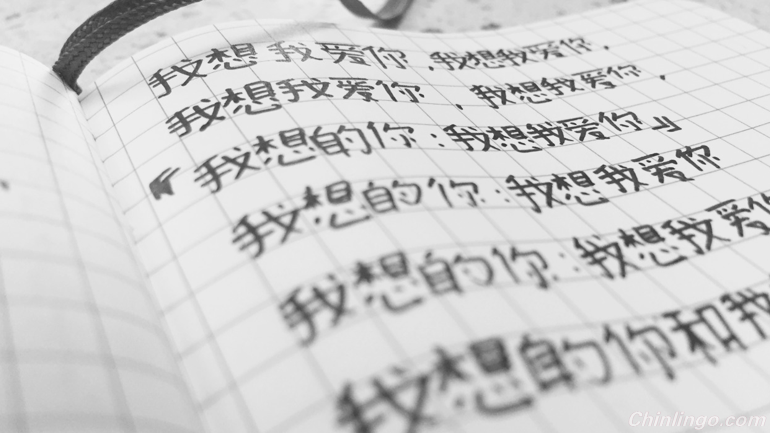 我想我爱你,我想我爱你,
我想我爱你,我想我爱你,
『我想的你:我想我爱你』
我想的你:我想我爱你
我想的你:我想我爱你
我想的你和我
Chinlingo.com